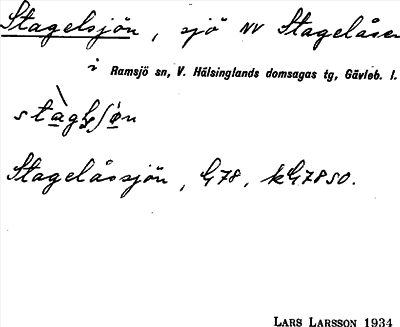 Stagelsjön, sjö NV Stagelåsen
i Ramsjö sn, V. Hälsinglands domsagas tg, Gävleb. l.
Stagelåssjön, G78, kG78SO.
LARS LARSSON 1934